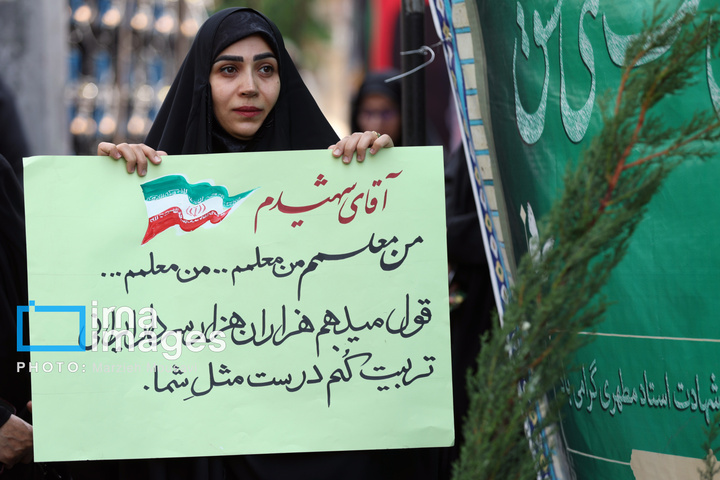 آقای شهیدم
من معلمم من معلمم .. من معلمم ...
قول میدهم هزاران هزار سردار ایرانی
تربیت کُنم درست مثلِ شما.
شهادت استاد مطهری گرامی باد
irna
images
PHOTO: